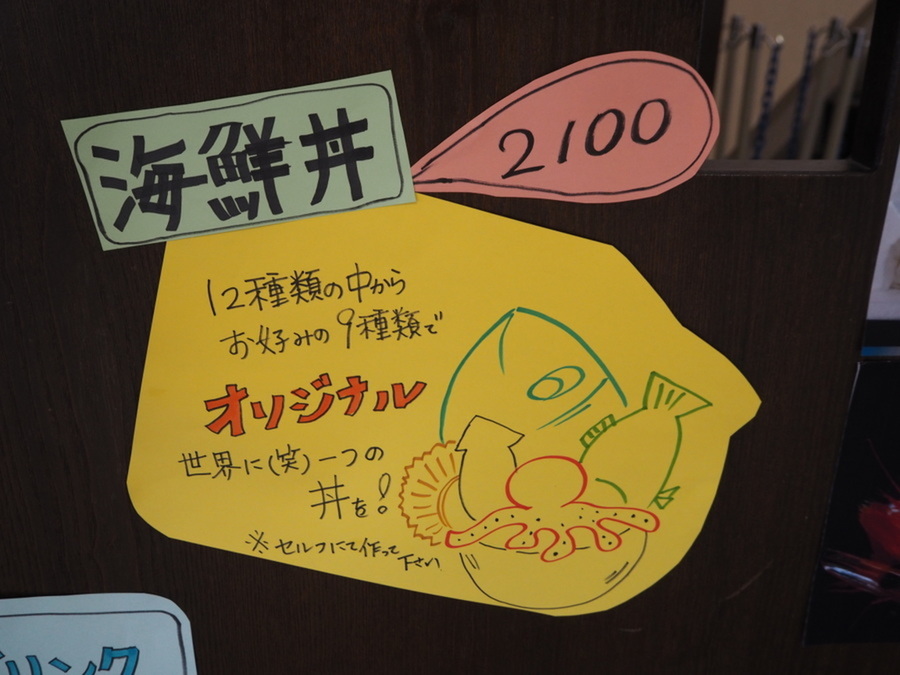 海鮮丼
2100
12種類の中から
お好みの9種類で
オリジナル
世界に(笑)一つの
丼を!
※セルフにて作って
下さい
ドリンク